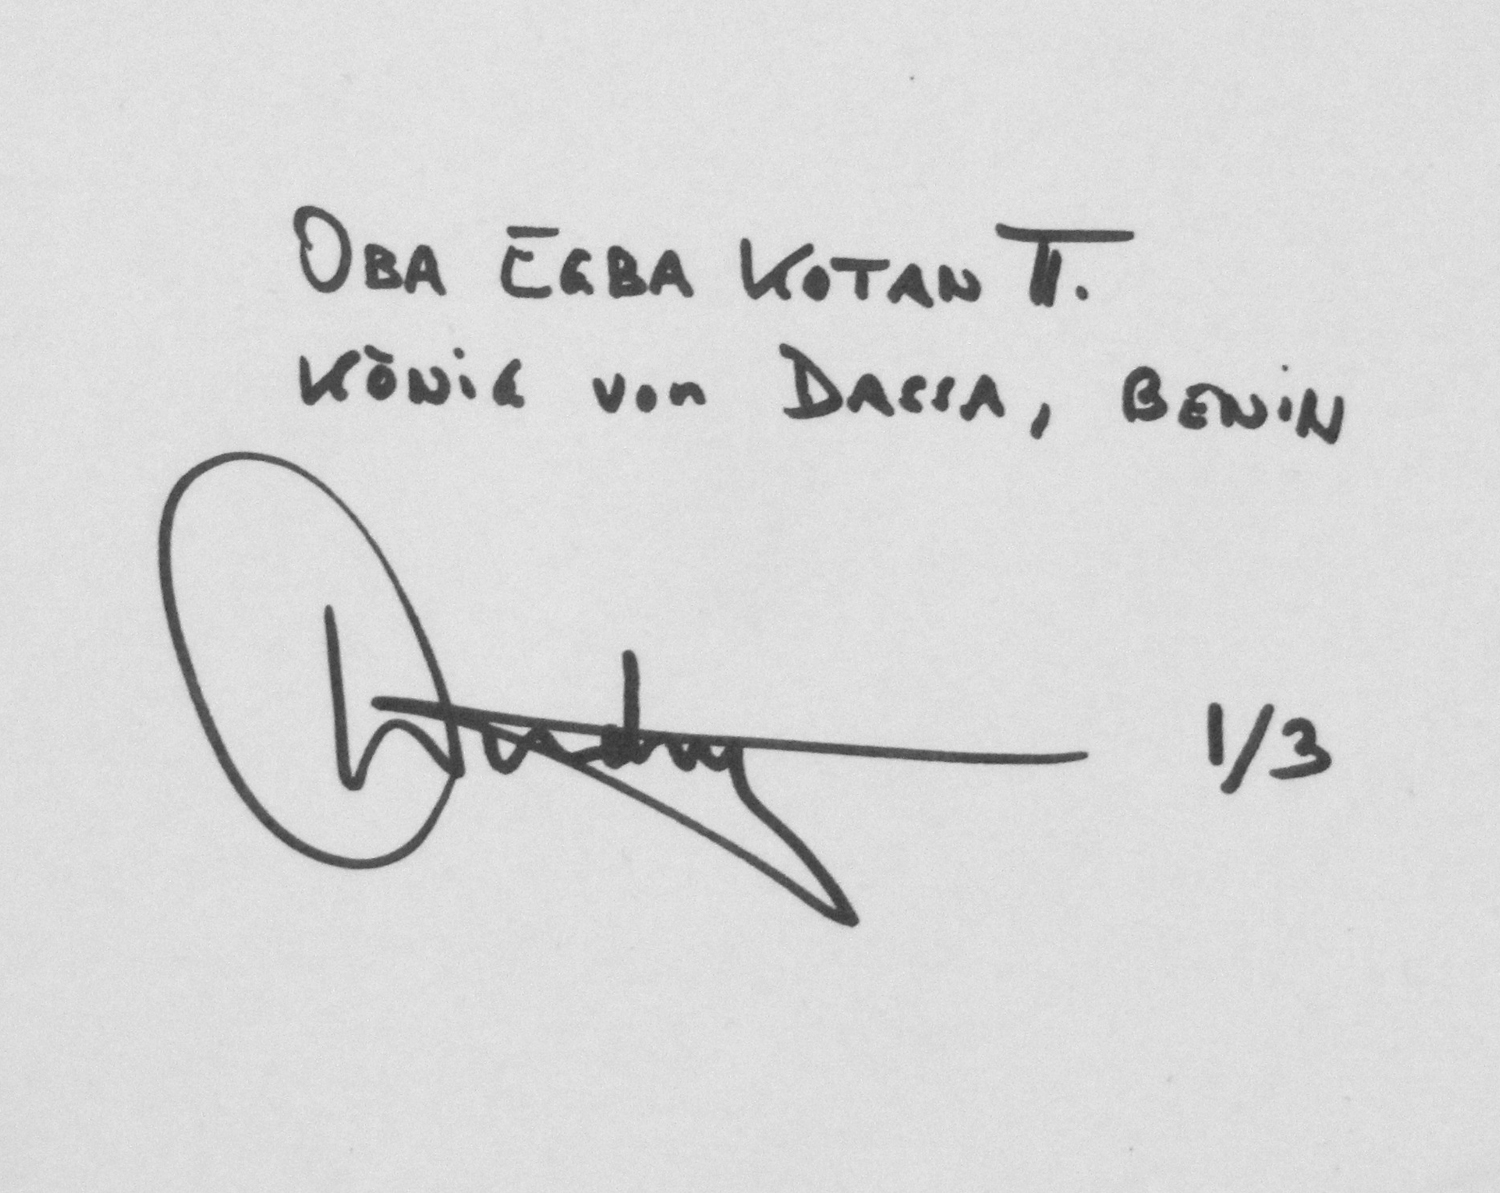 OBA EGBA KOTAN II.
KÖNIG von DASSA, BENIN
1/3